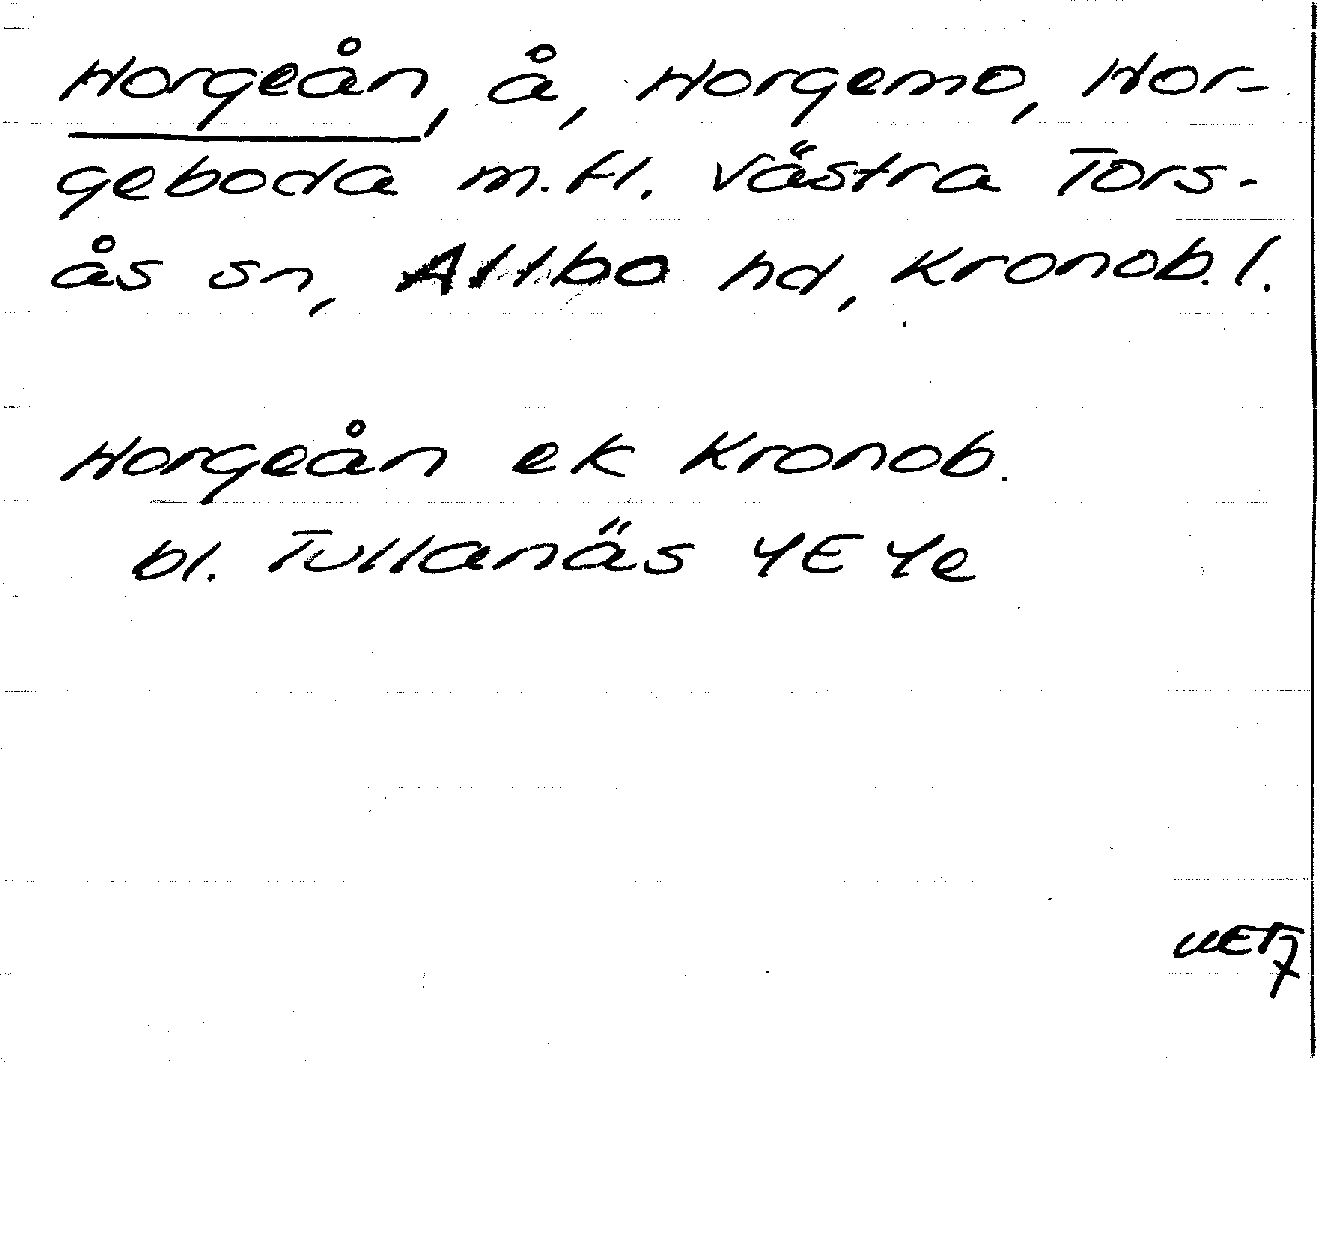 Horgeån, å, Horgemo, Hor-
geboda m.fl. Västra Tors-
ås sn, Allbo hd, Kronob. l.
Horgeån ek Kronob.
bl. Tullanäs 4E 4e